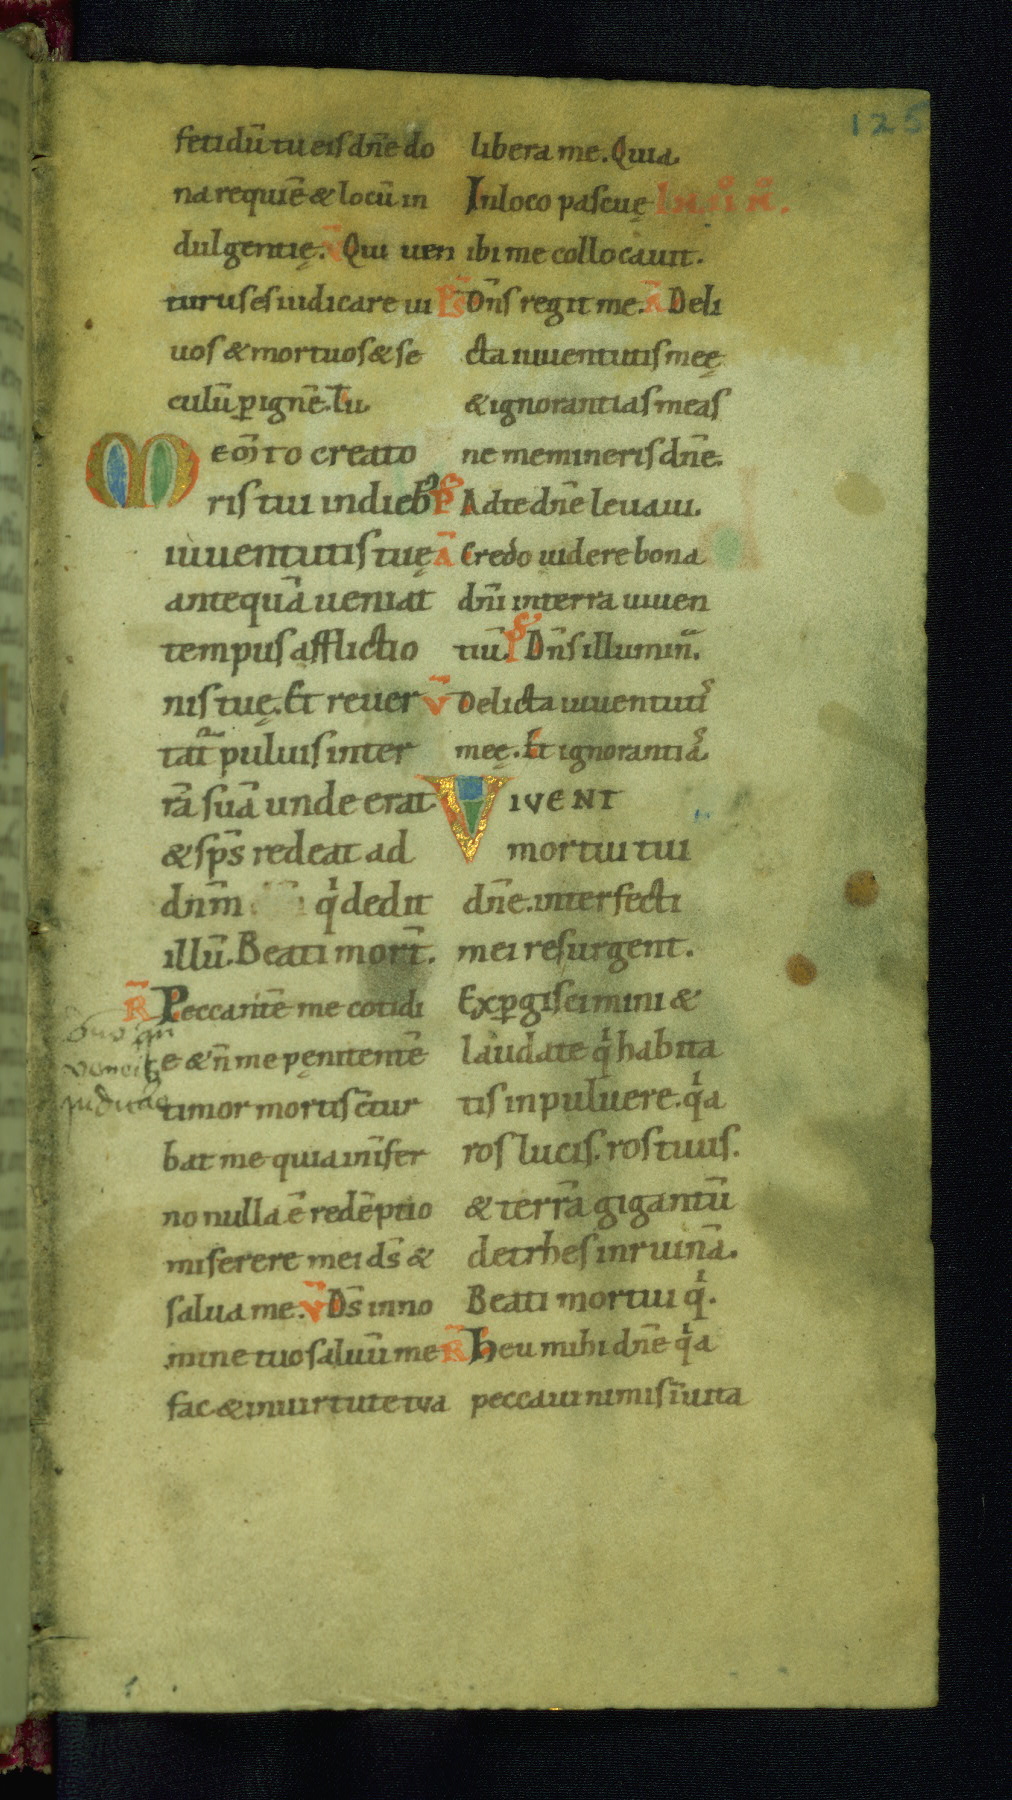 125
fetidū tu eis dn̄e do
na requiē & locū in
dulgentię. V̄ Qui uen
turus es iudicare ui
uos & mortuos & se
culū ꝑ ignē. Tu
Mem̄to creato
ris tui in dieb᷒
iuuentutis tuę
antequā ueniat
tempus afflictio
nis tuę. Et reuer
tat᷑ puluis in ter
rā suā unde erat
& sps̄ redeat ad
dnm̄ qͥ dedit
illū. Beati mort̄.
R̄ Peccantē me cotidi
e & n̄ me pęnitentē
timor mortis ctur
bat me quia in īfer
no nulla ē redēptio
miserere mei ds̄ &
salua me. V̄ Ds̄ in no
mine tuo saluū me
fac & in uirtute tua
libera me. Quia
In loco pascuę IN .II. N̄.
ibi me collocauit.
Ps̄ Dn̄s regit me. Ā Deli
cta iuuentutis meę
& ignorantias meas
ne memineris dn̄e.
Ps Ad te dn̄e leuaui.
Ā Credo uidere bona
dn̄i in terra uiuen
tiū. Ps Dn̄s illumin̄.
V̄ Delicta iuuentutis
meę. Et ignorantias
VIVENT
mortui tui
dn̄e. interfecti
mei resurgent.
Exꝑgiscimini &
laudate qͥ habita
tis in puluere. qͥa
ros lucis. ros tuus.
& terrā gigantū
detrhes in ruinā.
Beati mortui qͥ.
R̄ Heu mihi dn̄e qͥa
peccaui nimis ī uita